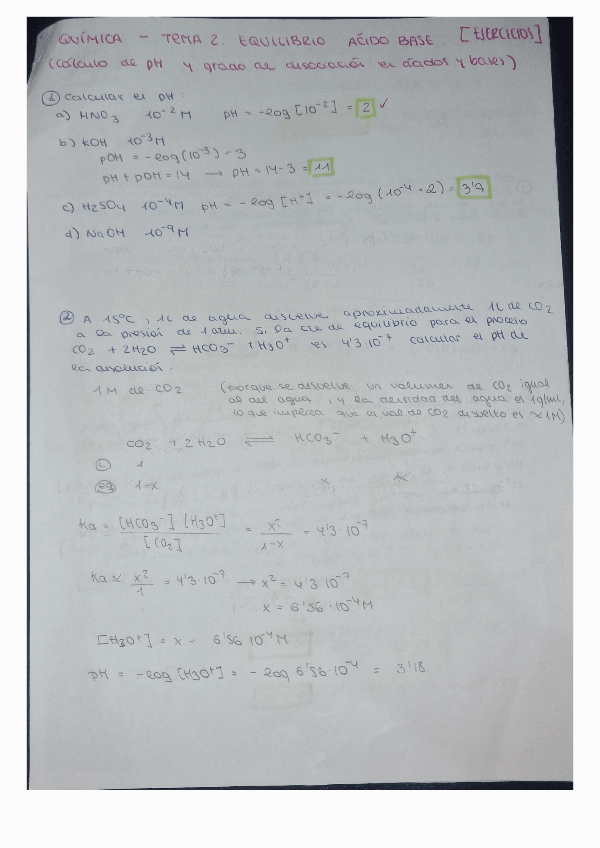 QUÍMICA - TEMA 2. EQUILIBRIO ÁCIDO BASE. [EJERCICIOS]
(cálculo de pH y grado de disociación en ácidos y bases)
① Calcular el pH:
a) HNO3 10⁻² M pH = -log [10⁻²] = 2 ✓
b) KOH 10⁻³ M
pOH = -log(10⁻³) - 3
pH + pOH = 14 → pH = 14 - 3 = 11
c) H2SO4 10⁻⁴ M pH = -log [H⁺] = -log (10⁻⁴ · 2) = 3'7
d) NaOH 10⁻⁹ M
② A 15ºC, 1L de agua disuelve aproximadamente 1L de CO2
a la presión de 1 atm. Si la cte de equilibrio para el proceso
CO2 + 2H2O ⇌ HCO3⁻ + H3O⁺ es 4'3·10⁻⁷ calcular el pH de
la disolución.
1 M de CO2 (porque se disuelve un volumen de CO2 igual
al del agua, y la densidad del agua es 1g/mL,
lo que implica que el val de CO2 disuelto es ≈ 1M)
CO2 + 2 H2O ⇌ HCO3⁻ + H3O⁺
ⓘ 1
eq 1-x x x
Ka = [HCO3⁻] [H3O⁺] / [CO2] = x² / 1-x = 4'3·10⁻⁷
Ka ≈ x² / 1 = 4'3·10⁻⁷ → x² = 4'3·10⁻⁷
x = 6'56 · 10⁻⁴ M
[H3O⁺] = x = 6'56 10⁻⁴ M
pH = -log [H3O⁺] = - log 6'56 · 10⁻⁴ = 3'18.